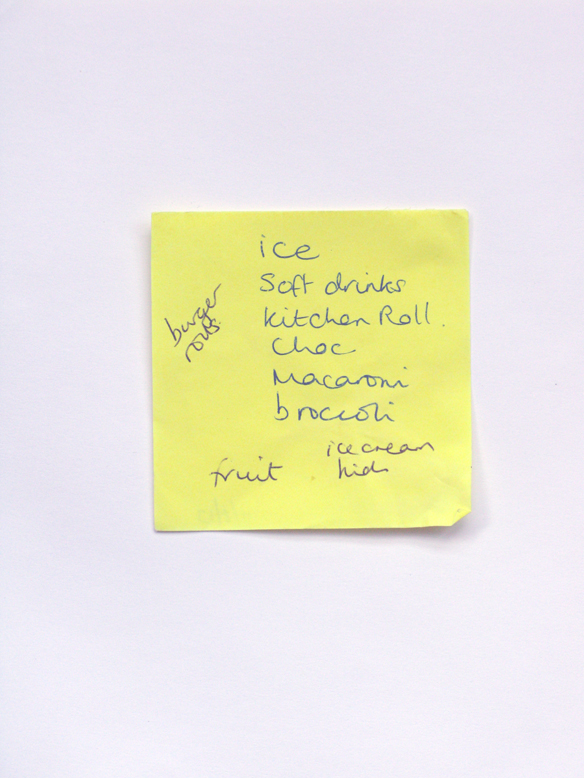 ice
Soft drinks
Kitchen Roll.
Choc
Macaroni
broccoli
burger
rolls
ice cream
kids
fruit